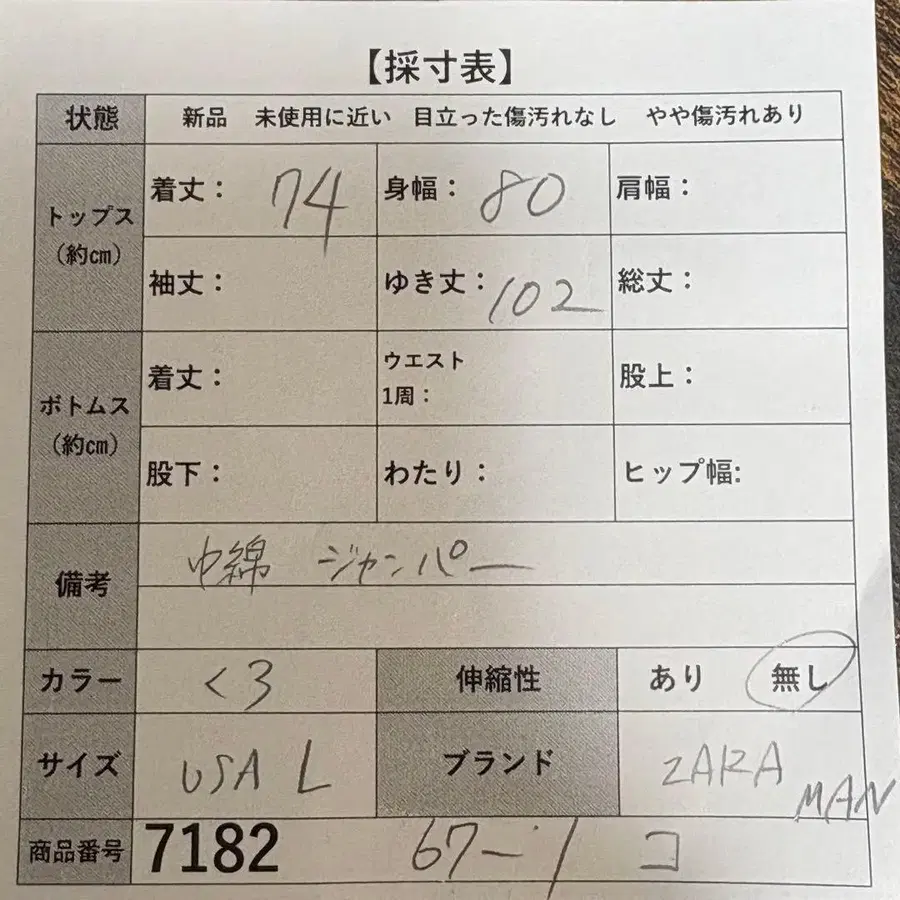 【採寸表】
状態 新品 未使用に近い 目立った傷汚れなし やや傷汚れあり
トップス（約㎝）
着丈： 74 身幅： 80 肩幅：
袖丈： ゆき丈： 102 総丈：
ボトムス（約㎝）
着丈： ウエスト1周： 股上：
股下： わたり： ヒップ幅:
備考 中綿 ジャンパー
カラー くろ 伸縮性 あり 無し
サイズ USA L ブランド ZARA MAN
商品番号 7182 67-1 コ